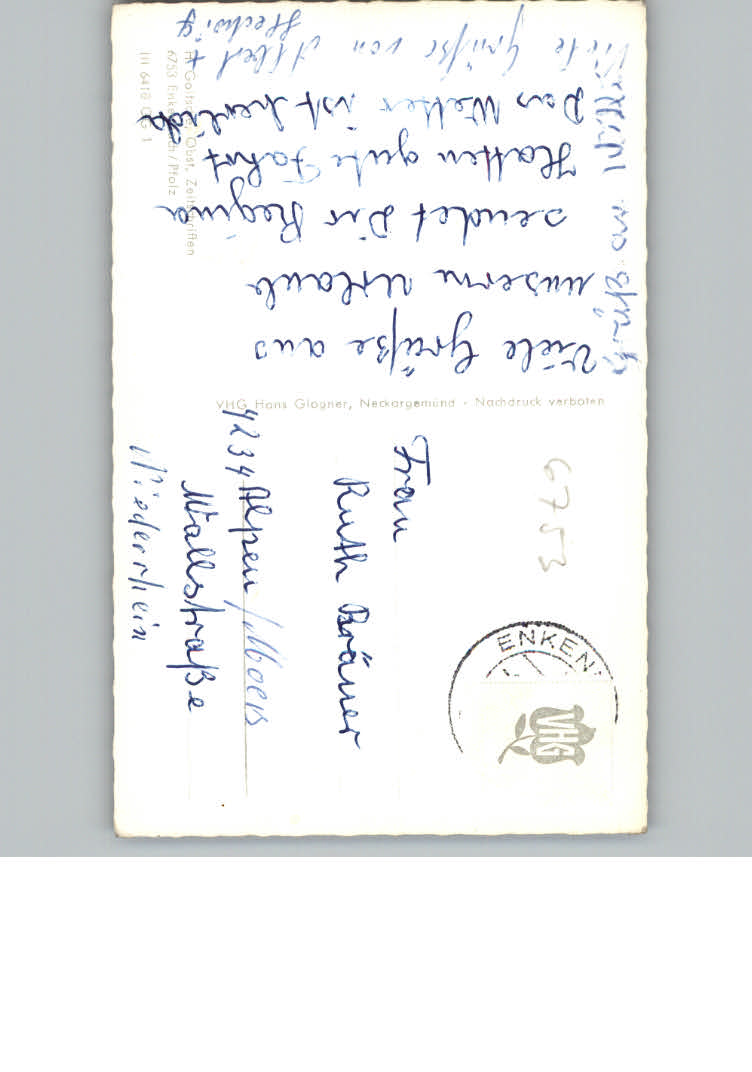 Viele Grüße aus
unserm Urlaub
sendet Dir Regina
Hatten gute Fahrt
Das Wetter ist herrlich
Viele Grüße von Albert +
Hedwig
6753 Enkenbach/Pfalz
III 6418
VHG Hans Glogner, Neckargemünd · Nachdruck verboten
6753
ENKEN
VHG
Frau
Ruth Brämer
4234 Alpen / Moers
Wallstraße
Niederrhein